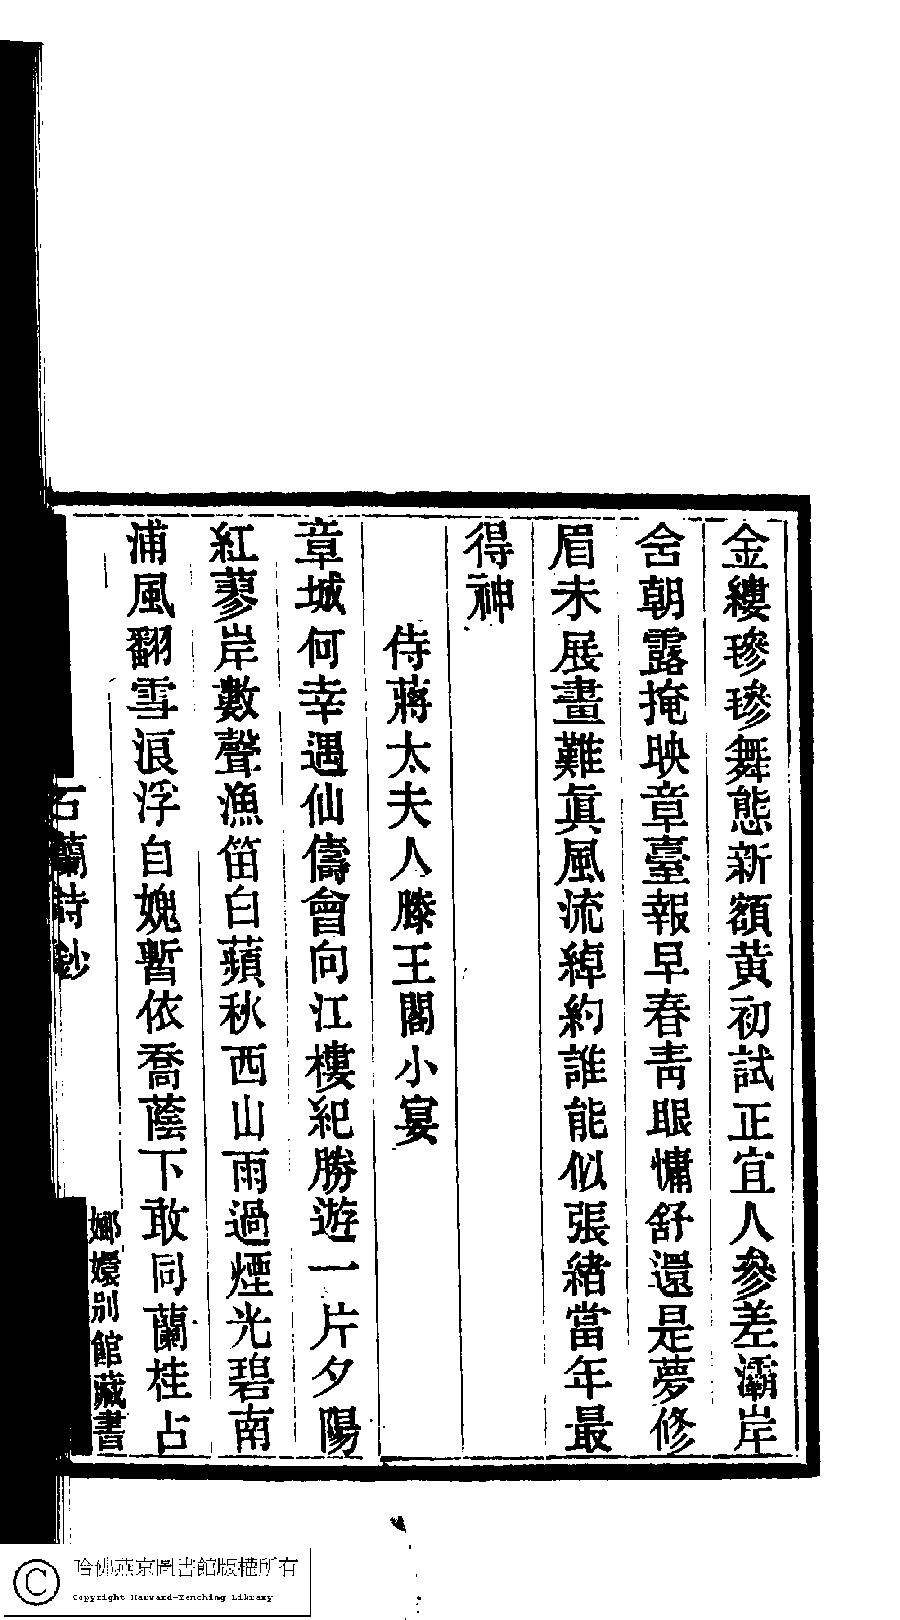 金縷㺑㺑舞態新額黃初試正宜人參差灞岸
含朝露掩映章臺報早春靑眼慵舒還是夢修
眉未展畫難眞風流綽約誰能似張緒當年最
得神
侍蔣太夫人滕王閣小宴
章城何幸遇仙儔曾向江樓紀勝遊一片夕陽
紅蓼岸數聲漁笛白蘋秋西山雨過煙光碧南
浦風翻雪浪浮自媿暫依喬蔭下敢同蘭桂占
石蘭詩鈔
嫏嬛別館藏書
哈佛燕京圖書館版權所有
Copyright Harvard-Yenching Library